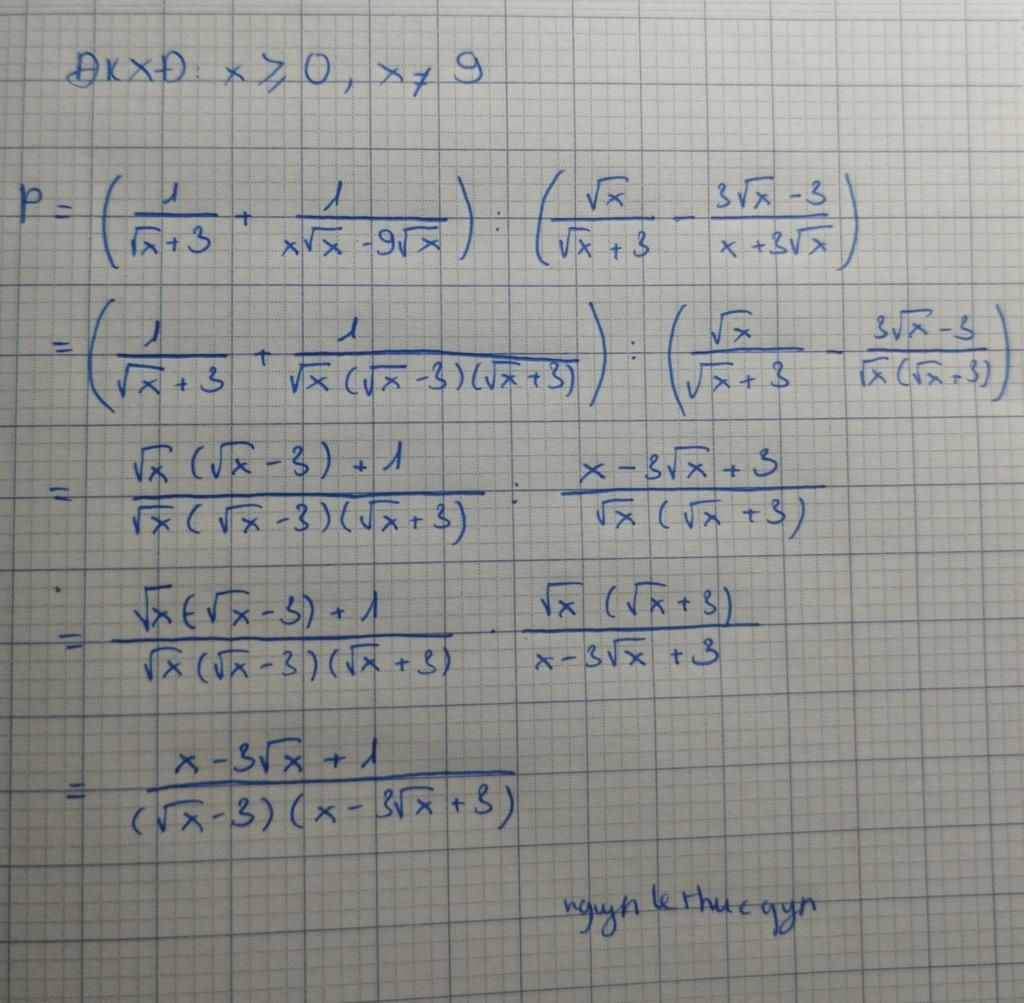 ĐKXĐ: x ⩾ 0, x ≠ 9
P = (1/(√x + 3) + 1/(x√x - 9√x)) : (√x/(√x + 3) - (3√x - 3)/(x + 3√x))
= (1/(√x + 3) + 1/(√x (√x - 3)(√x + 3))) : (√x/(√x + 3) - (3√x - 3)/(√x (√x + 3)))
= (√x (√x - 3) + 1)/(√x (√x - 3)(√x + 3)) : (x - 3√x + 3)/(√x (√x + 3))
= (√x (√x - 3) + 1)/(√x (√x - 3)(√x + 3)) · (√x (√x + 3))/(x - 3√x + 3)
= (x - 3√x + 1)/((√x - 3)(x - 3√x + 3))
le thuc